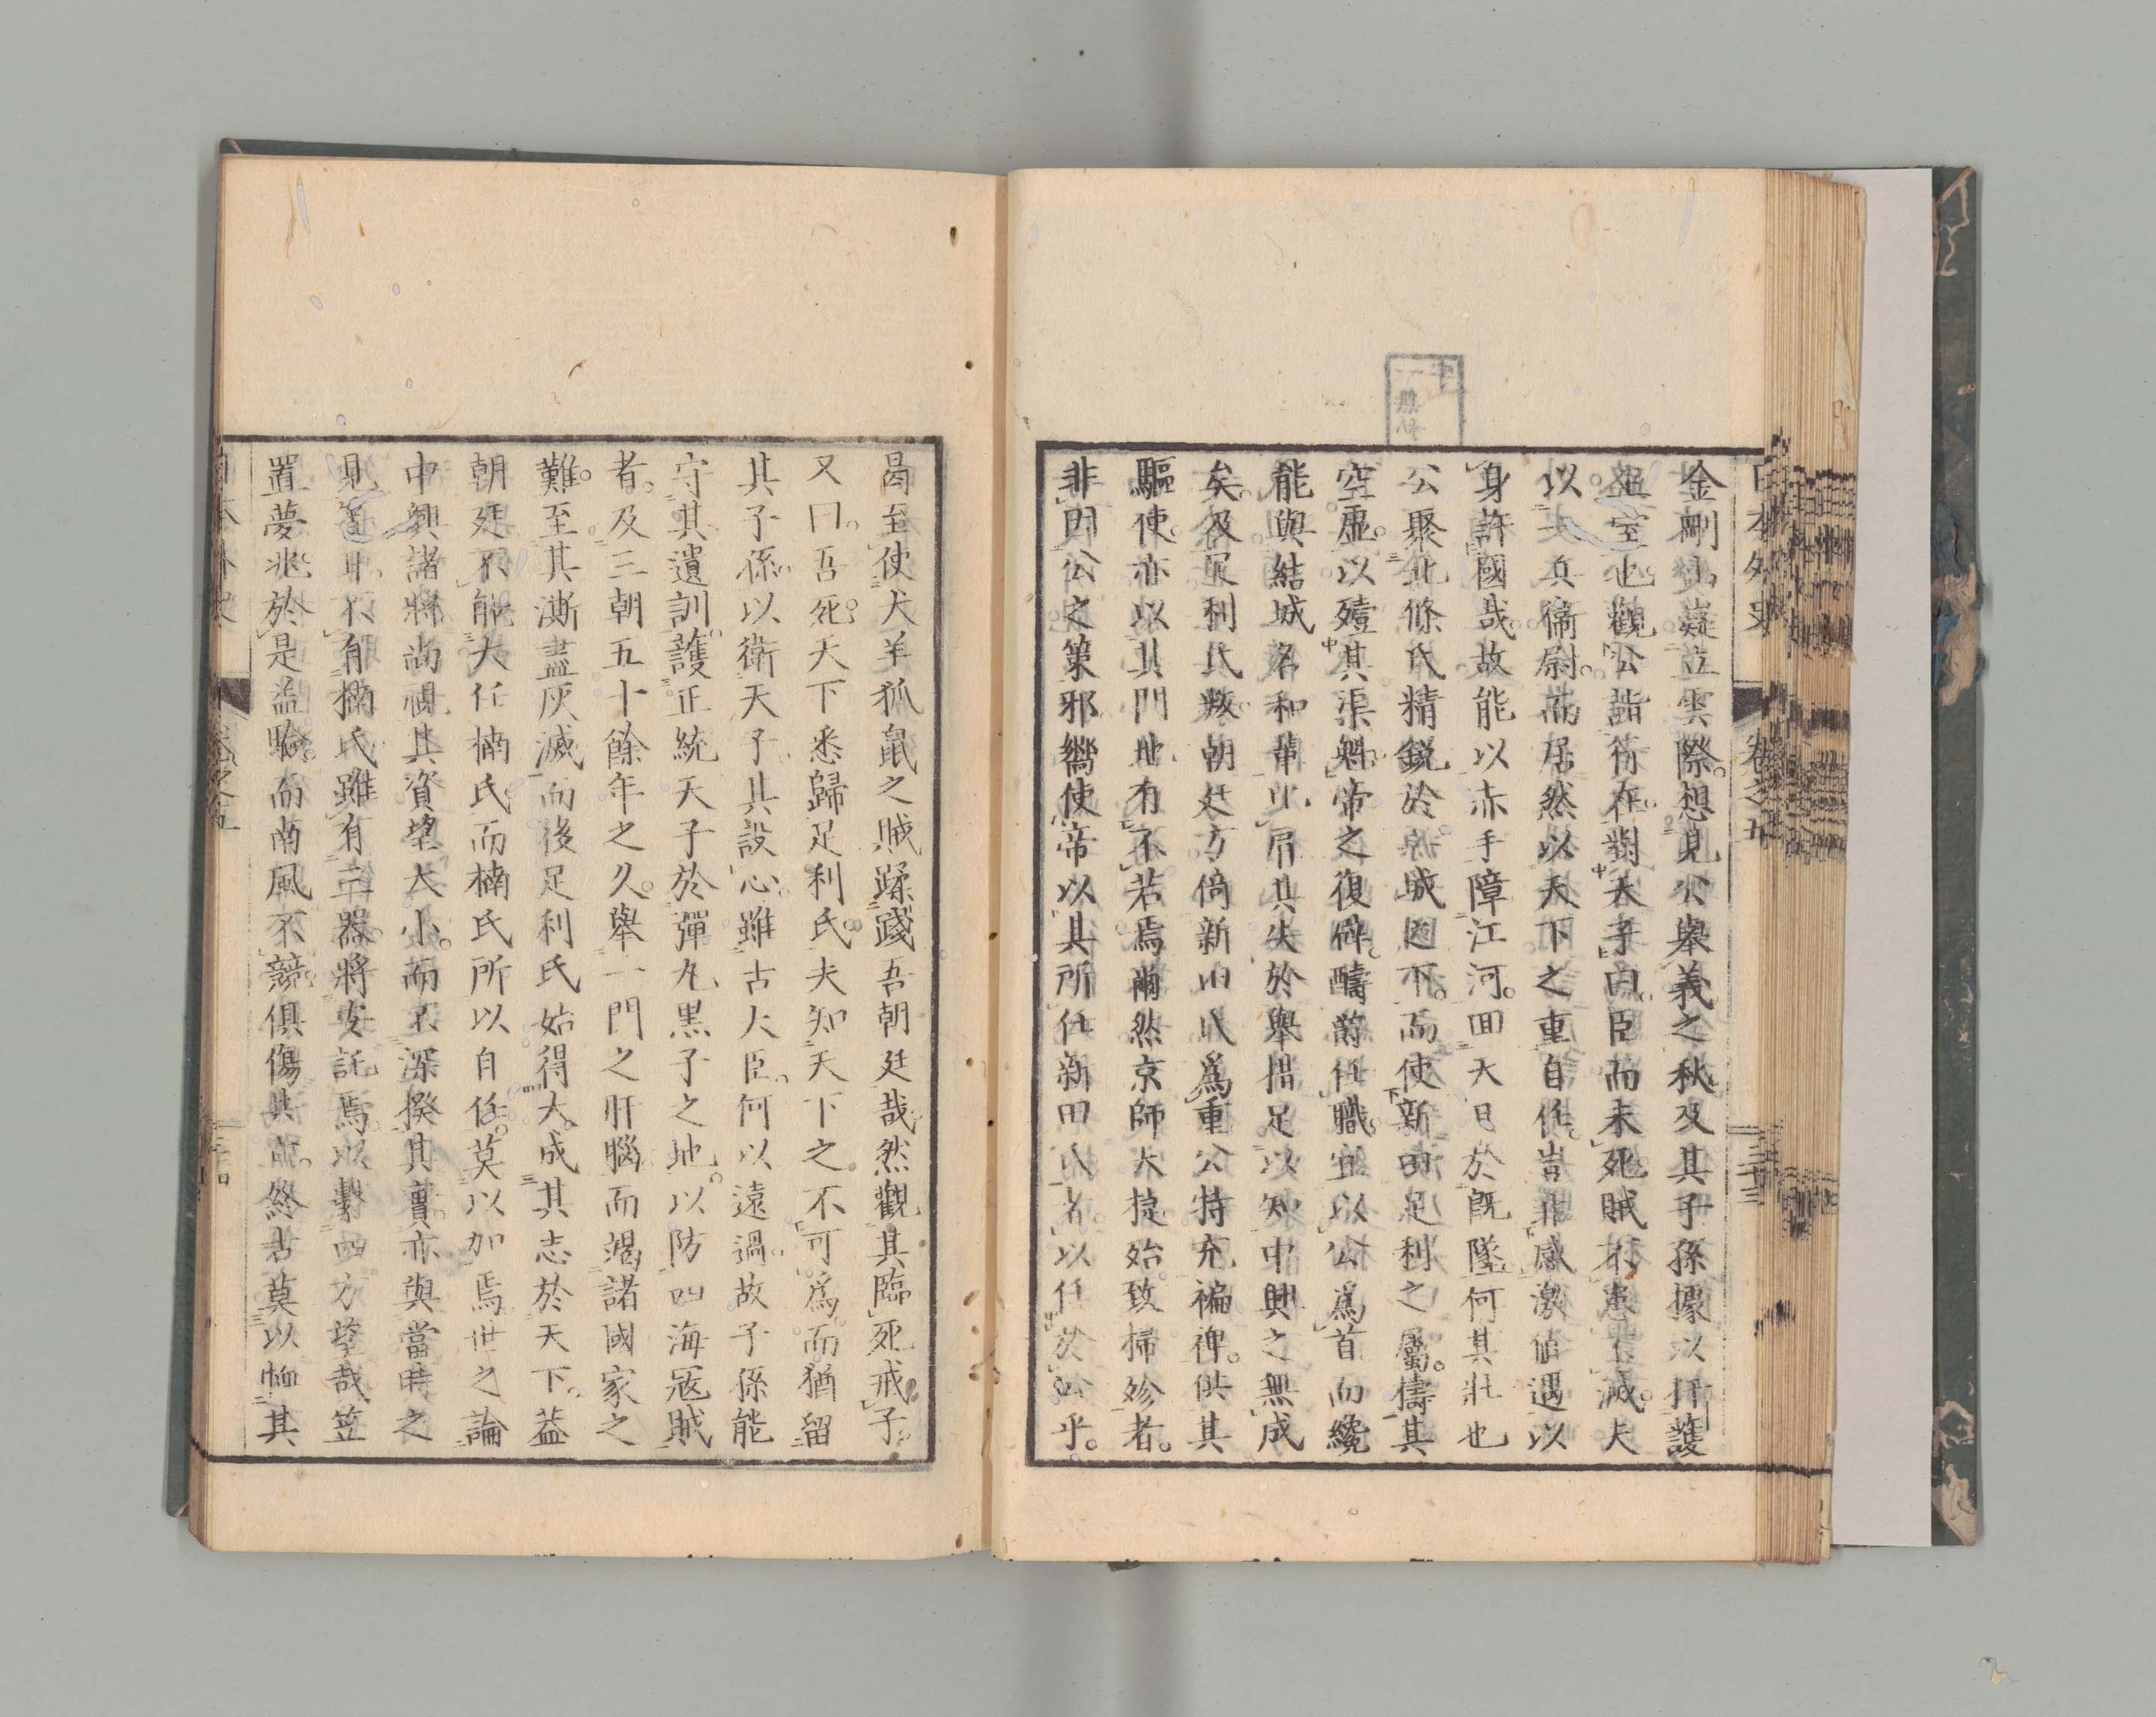 日本外史 卷之五 三十三
金剛山嶷立雲際。想見公舉義之秋及其子孫據以扞護
王室也。觀公詣行在。對天子曰。臣而未死。賊不患不滅。夫
以一兵衞尉。而居然以天下之重自任。豈非感激値遇以
身許國哉。故能以赤手障江河。回天日於既墜。何其壯也
公聚北條氏精鋭於孤城之下。而使新田足利之屬。擣其
空虛。以殪其渠魁。帝之復辟。疇爵任職。宜以公爲首。而纔
能與結城名和輩比肩。其失於舉措。足以知中興之無成
矣。及足利氏叛。朝廷方倚新田氏爲重。公特充褊裨。供其
驅使。亦以其門地有不若焉爾。然京師大捷。始致掃殄者。
非因公之策邪。嚮使帝以其所任新田氏者。以任於公乎。
曷至使犬羊狐鼠之賊。蹂踐吾朝廷哉。然觀其臨死戒子
又曰。吾死。天下悉歸足利氏。夫知天下之不可爲。而猶留
其子孫。以衛天子。其設心。雖古大臣。何以遠過。故子孫能
守其遺訓。護正統天子於彈丸黑子之地。以防四海寇賊
者。及三朝五十餘年之久。舉一門之肝腦而竭諸國家之
難。至其澌盡灰滅。而後足利氏始得大成其志於天下。蓋
朝廷不能大任楠氏。而楠氏所以自任。莫以加焉。世之論
中興諸將。尚視其資望大小。而不深揆其實。亦與當時之
見等耳。不有楠氏。雖有三器。將安託焉。以繫四方望哉。笠
置夢兆。於是益驗。而南風不競。俱傷共亡。終古莫以恤其